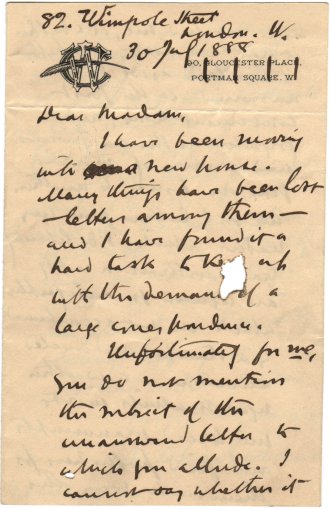 82. Wimpole Street
London. W.
30 July 1888
90, GLOUCESTER PLACE,
PORTMAN SQUARE. W.
Dear Madam,
I have been moving
into a new house.
Many things have been lost
— letters among them —
and I have found it a
hard task to keep up
with the demands of a
large correspondence.
Unfortunately for me,
you do not mention
the subject of the
unanswered letter to
which you allude. I
cannot say whether it